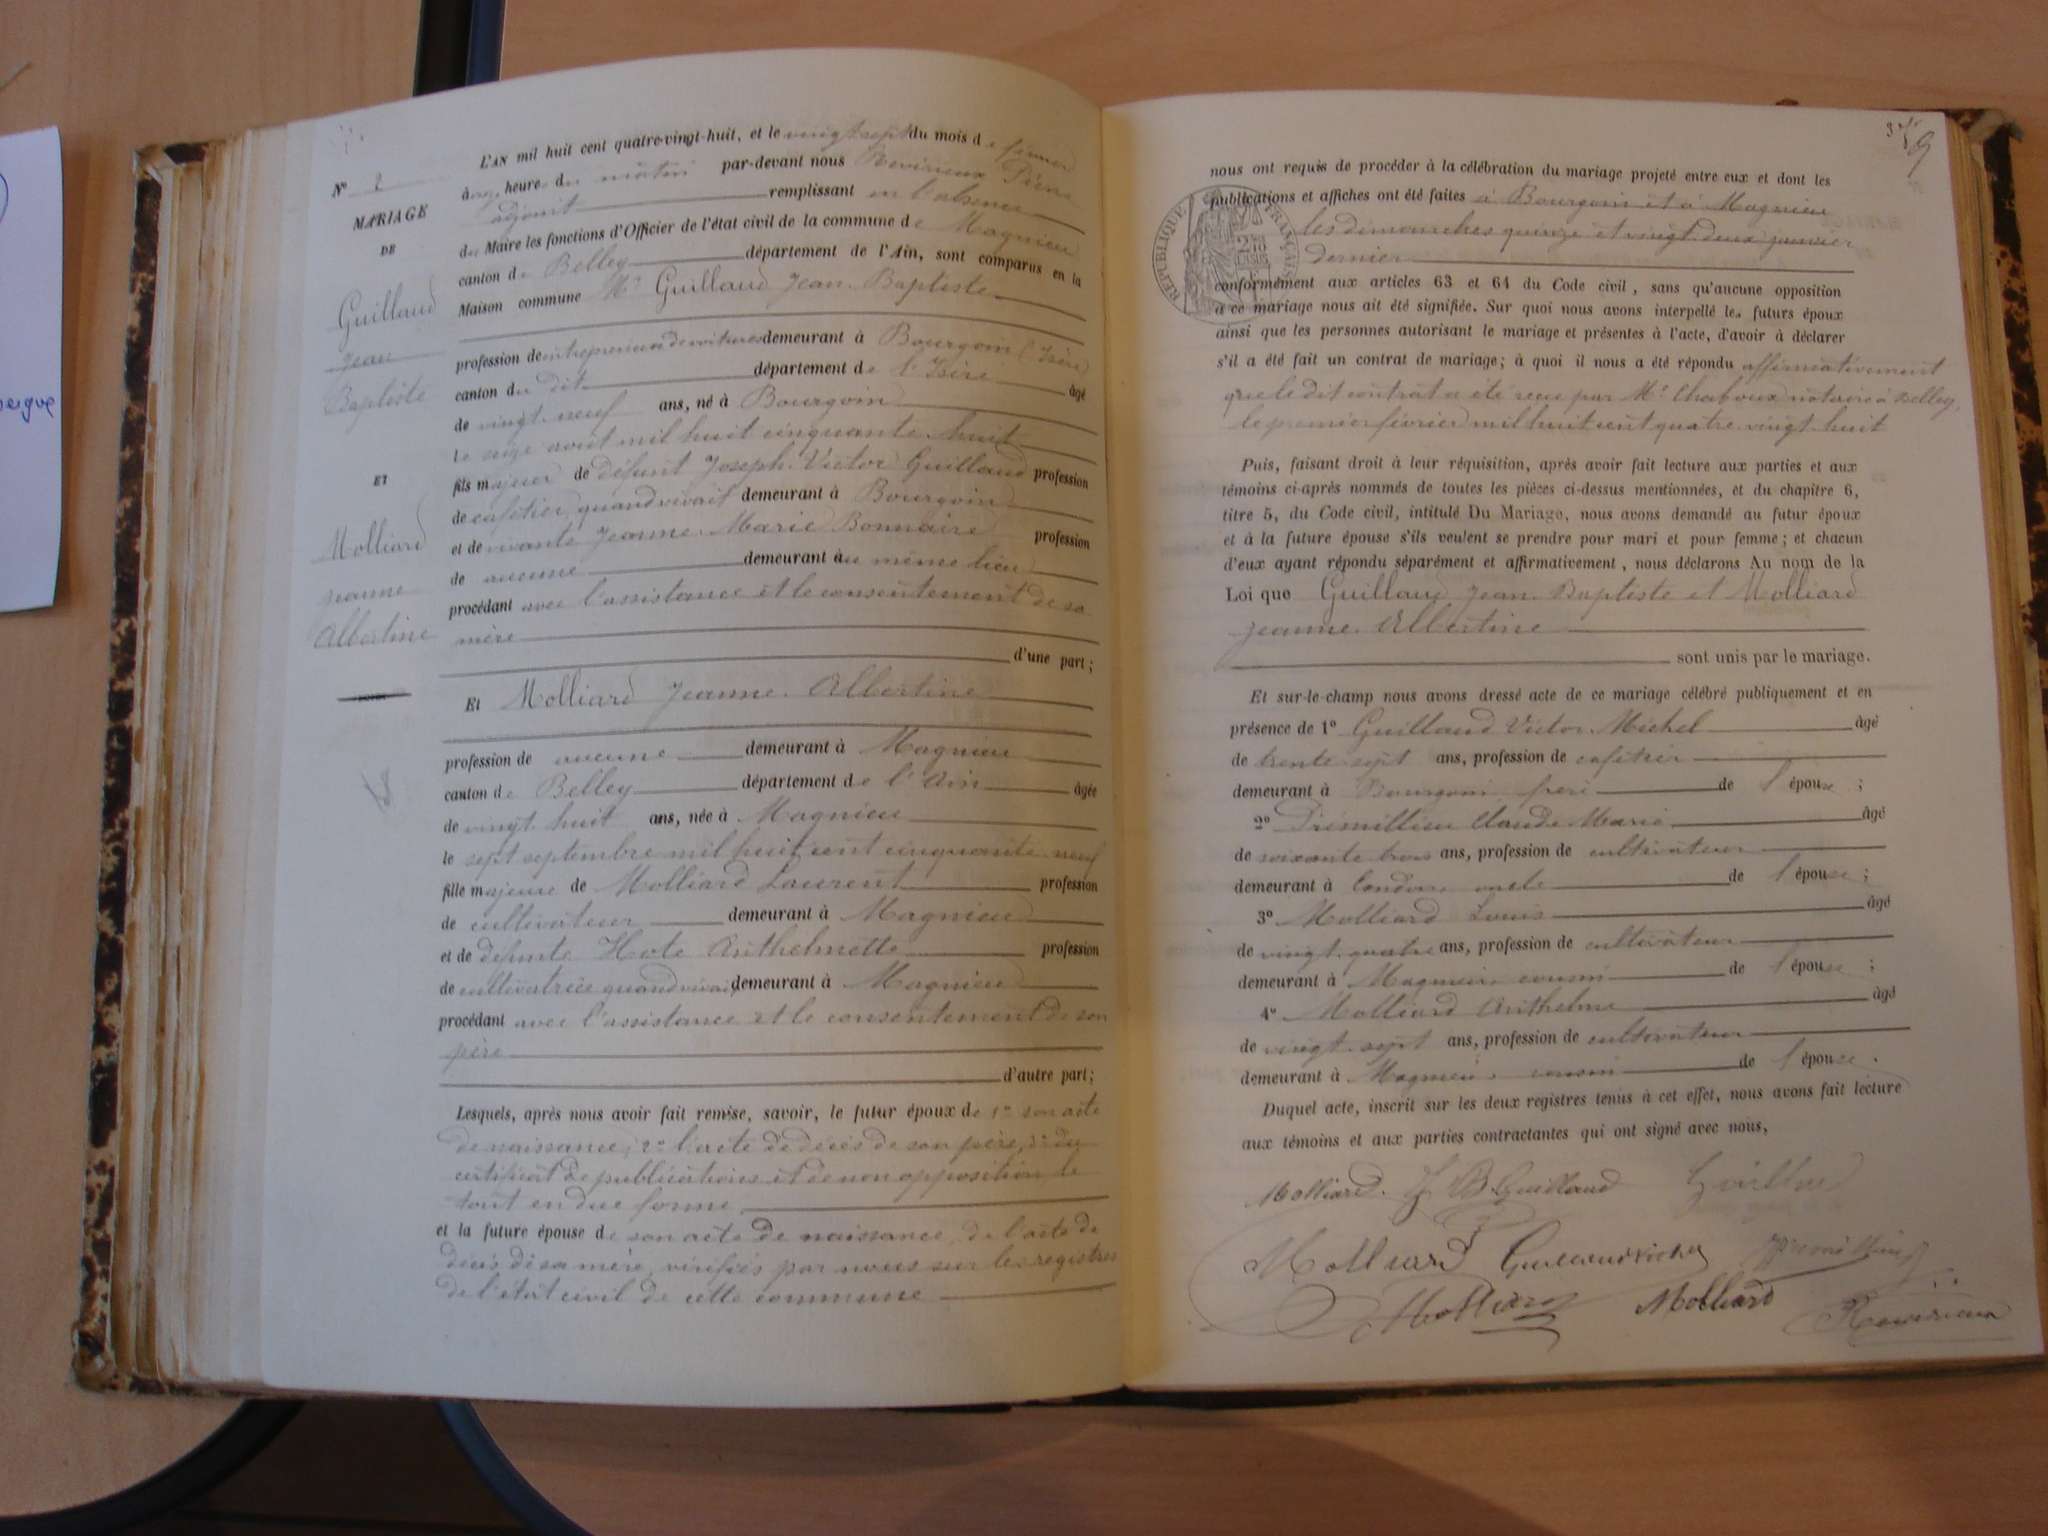 L'AN mil huit cent quatre-vingt-huit, et le vingt sept du mois de février
à heures du matin par-devant nous Revirieux Pierre
adjoint remplissant en l'absence
du Maire les fonctions d'Officier de l'état civil de la commune de Magnieu
canton de Belley département de l'Ain, sont comparus en la
Maison commune Mr Guillaud Jean Baptiste
profession de entrepreneur de voitures demeurant à Bourgoin (Isère)
canton du dit département de l'Isère âgé
de vingt neuf ans, né à Bourgoin
le seize août mil huit cinquante huit
fils majeur de défunt Joseph Victor Guillaud profession
de cafetier quand vivait demeurant à Bourgoin
et de vivante Jeanne Marie Bonnaire profession
de aucune demeurant au même lieu
procédant avec l'assistance et le consentement de sa
mère
d'une part;
Et Molliard Jeanne Albertine
profession de aucune demeurant à Magnieu
canton de Belley département de l'Ain âgée
de vingt huit ans, née à Magnieu
le sept septembre mil huit cent cinquante neuf
fille majeure de Molliard Laurent profession
de cultivateur demeurant à Magnieu
et de défunte Hote Anthelmette profession
de cultivatrice quand vivait demeurant à Magnieu
procédant avec l'assistance et le consentement de son
père
d'autre part;
Lesquels, après nous avoir fait remise, savoir, le futur époux de 1° son acte
de naissance; 2° l'acte de décès de son père, 3° du
certificat de publications et de non opposition, le
tout en due forme
et la future épouse de son acte de naissance, de l'acte de
décès de sa mère, vérifiés par nous sur les registres
de l'état civil de cette commune
N° 2
MARIAGE
DE
Guillaud
Jean
Baptiste
ET
Molliard
Jeanne
Albertine
9
nous ont requis de procéder à la célébration du mariage projeté entre eux et dont les
publications et affiches ont été faites à Bourgoin et à Magnieu
les dimanches quinze et vingt deux janvier
dernier
RÉPUBLIQUE FRANÇAISE
conformément aux articles 63 et 64 du Code civil, sans qu'aucune opposition
à ce mariage nous ait été signifiée. Sur quoi nous avons interpellé les futurs époux
ainsi que les personnes autorisant le mariage et présentes à l'acte, d'avoir à déclarer
s'il a été fait un contrat de mariage; à quoi il nous a été répondu affirmativement
que le dit contrat a été reçu par Me Chaboux notaire à Belley,
le premier février mil huit cent quatre vingt huit
Puis, faisant droit à leur réquisition, après avoir fait lecture aux parties et aux
témoins ci-après nommés de toutes les pièces ci-dessus mentionnées, et du chapitre 6,
titre 5, du Code civil, intitulé Du Mariage, nous avons demandé au futur époux
et à la future épouse s'ils veulent se prendre pour mari et pour femme; et chacun
d'eux ayant répondu séparément et affirmativement, nous déclarons Au nom de la
Loi que Guillaud Jean Baptiste et Molliard
Jeanne Albertine
sont unis par le mariage.
Et sur-le-champ nous avons dressé acte de ce mariage célébré publiquement et en
présence de 1° Guillaud Victor Michel âgé
de trente sept ans, profession de cafetier
demeurant à Bourgoin frère de l'épouse;
2° Prémillieu Claude Marie âgé
de soixante trois ans, profession de cultivateur
demeurant à Condon oncle de l'épouse;
3° Molliard Louis âgé
de vingt quatre ans, profession de cultivateur
demeurant à Magnieu cousin de l'épouse;
4° Molliard Anthelme âgé
de vingt sept ans, profession de cultivateur
demeurant à Magnieu cousin de l'épouse.
Duquel acte, inscrit sur les deux registres tenus à cet effet, nous avons fait lecture
aux témoins et aux parties contractantes qui ont signé avec nous,
Molliard. J B Guillaud Guillaud
Molliard
Molliard Molliard Revirieux